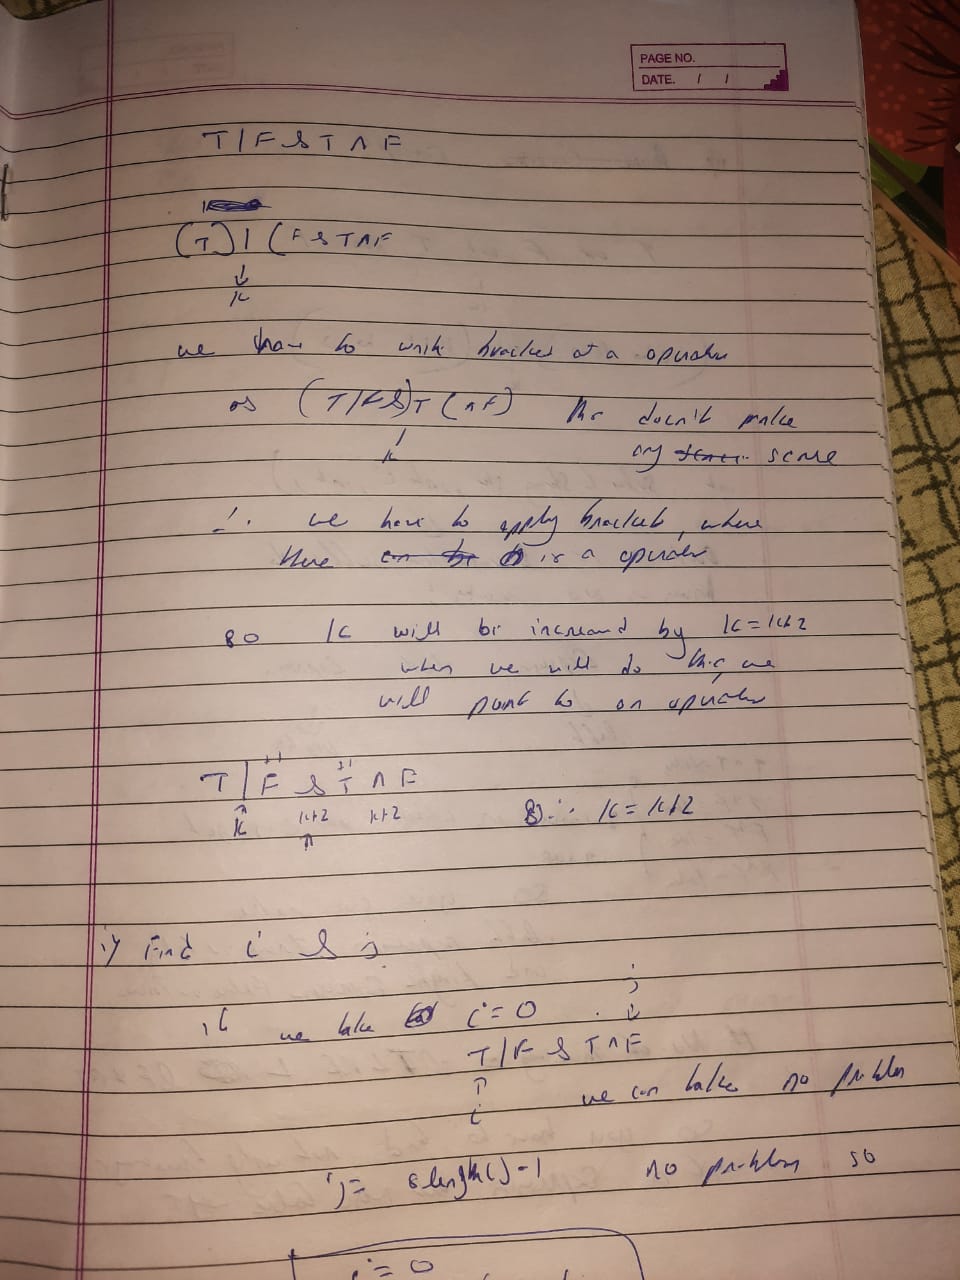 PAGE NO.
DATE. / /
T | F & T ^ F
(T) | (F & T ^ F
k
we have to write bracket at a operator
as (T | F &) T (^ F) this doesn't make
k
any sense
∴ we have to apply bracket, where
there is a operator
so k will be increased by k = k+2
when we will do this, we
will point to an operator
T | F & T ^ F
k k+2 k+2 ∴ k = k+2
i) Find i & j
if we take i = 0 j
T | F & T ^ F
i we can take no problem
j = s.length() - 1 no problem so
i = 0